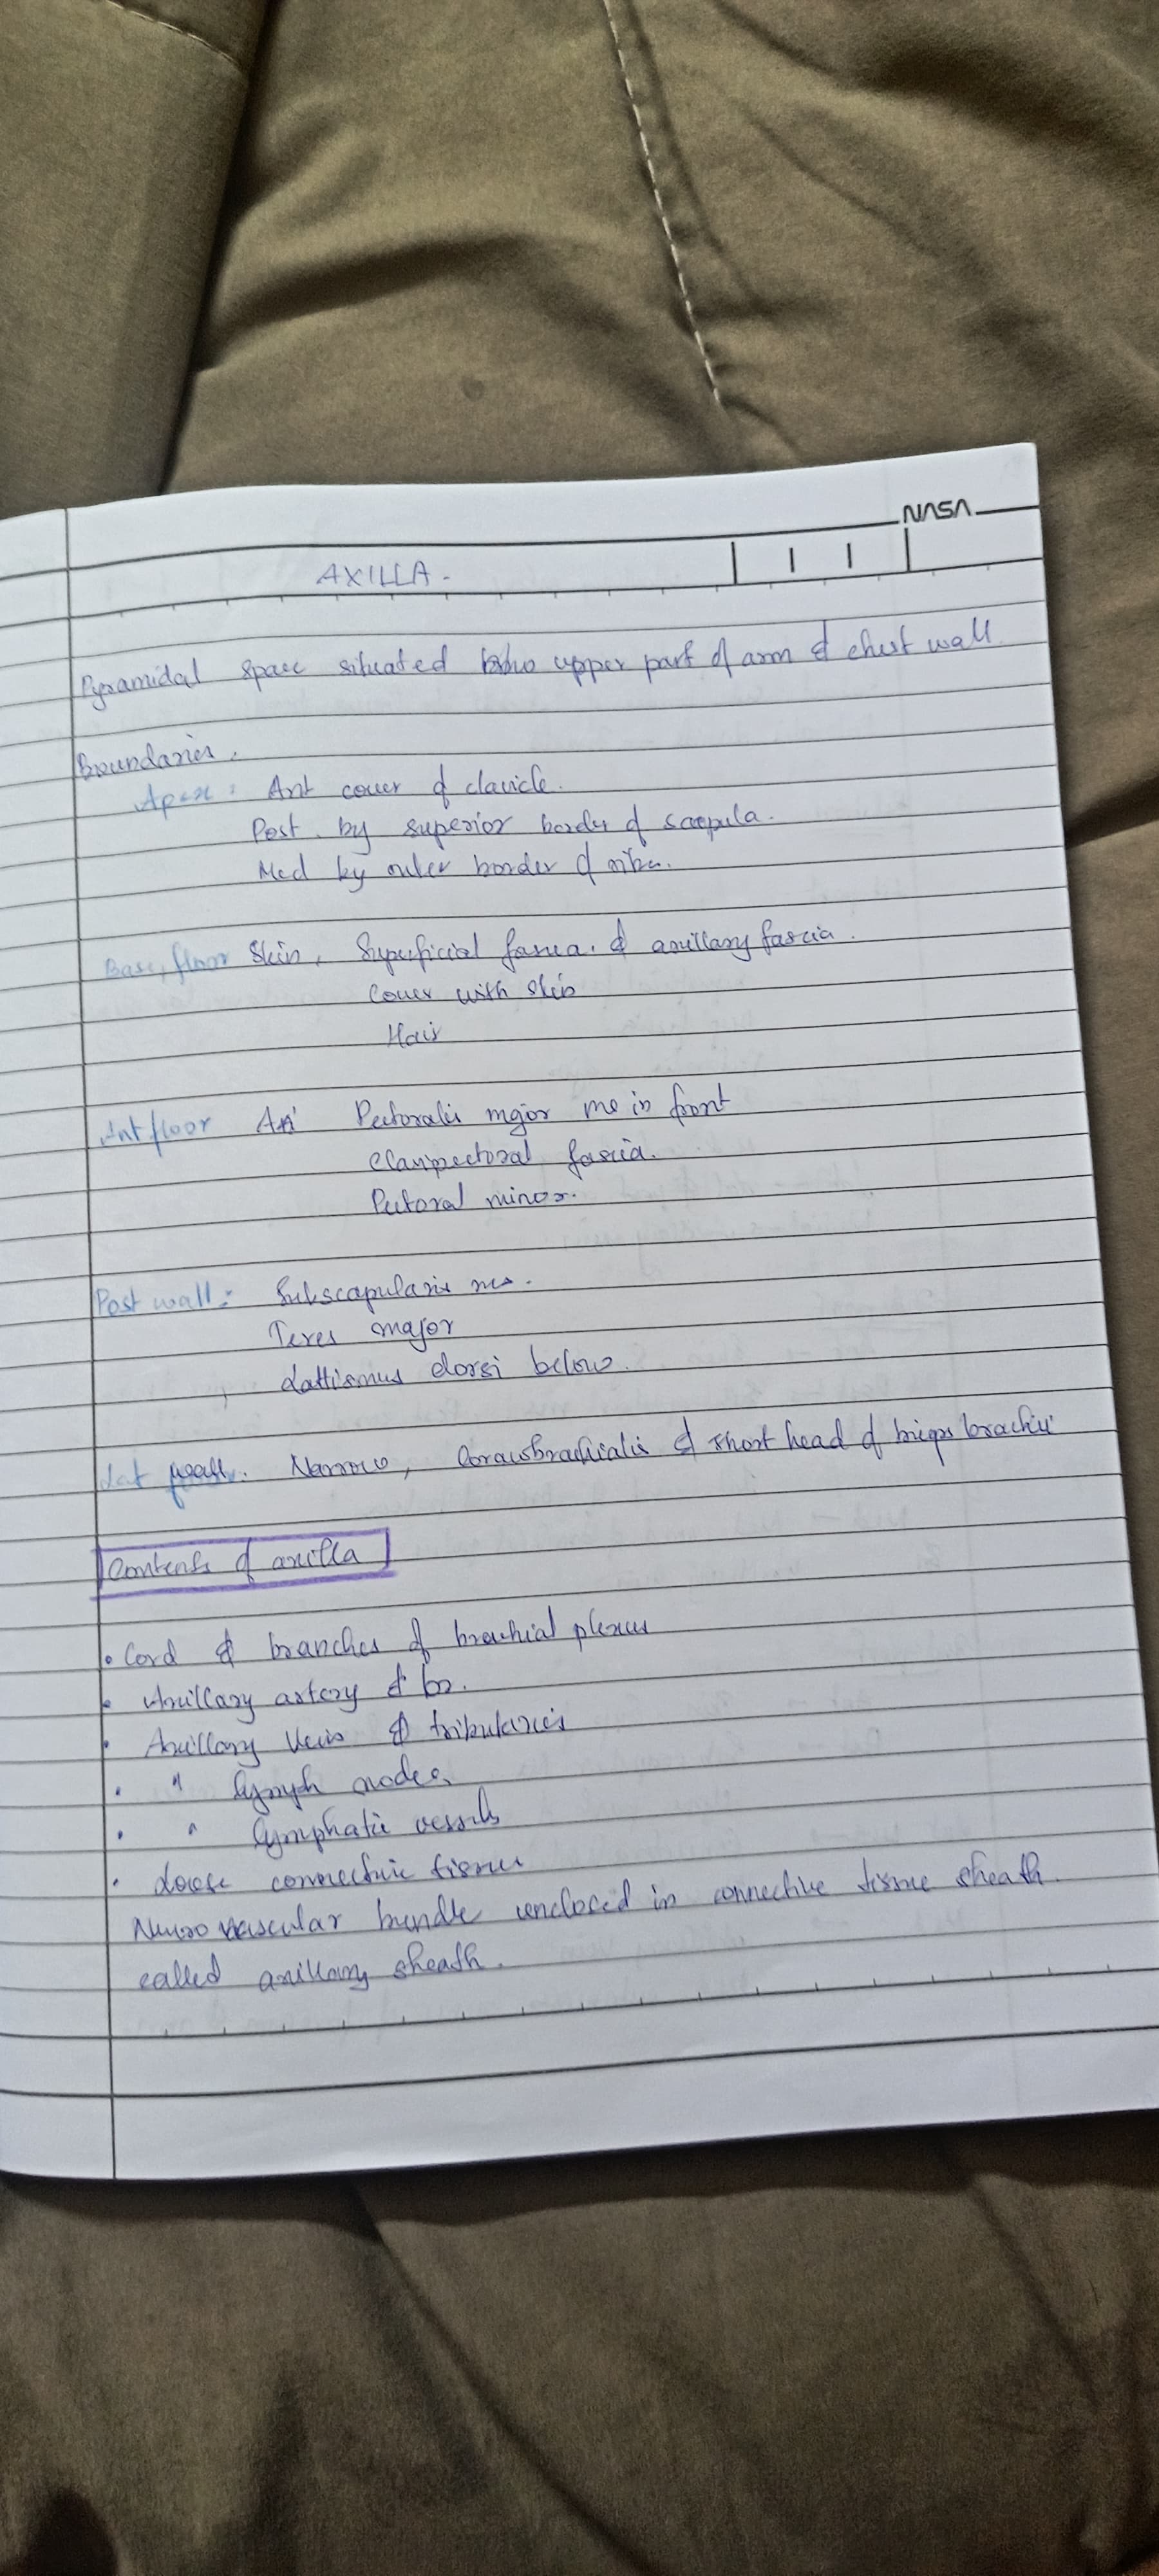 NASA
AXILLA -
Pyramidal space situated upper part of arm & chest wall
Boundaries.
Apex: Ant cover of clavicle.
Post. by superior border of scapula.
Med by outer border of
Base, floor Skin, Superficial fascia. & axillary fascia.
Cover with skin
Hair
Ant floor Pectoralis major ms in front
Clavipectoral fascia.
Pectoral minor.
Post wall: Subscapularis ms.
Teres major
Lattismus dorsi below.
Lat wall. Narrow, Coracobrachialis & short head of biceps brachii
Contents of axilla
• Cord & branches of brachial plexus
• Axillary artery & br.
• Axillary Vein & tributaries
• " lymph nodes
• " lymphatic vessels
• Loose connective tissue
Neuro vascular bundle enclosed in connective tissue sheath
called axillary sheath.